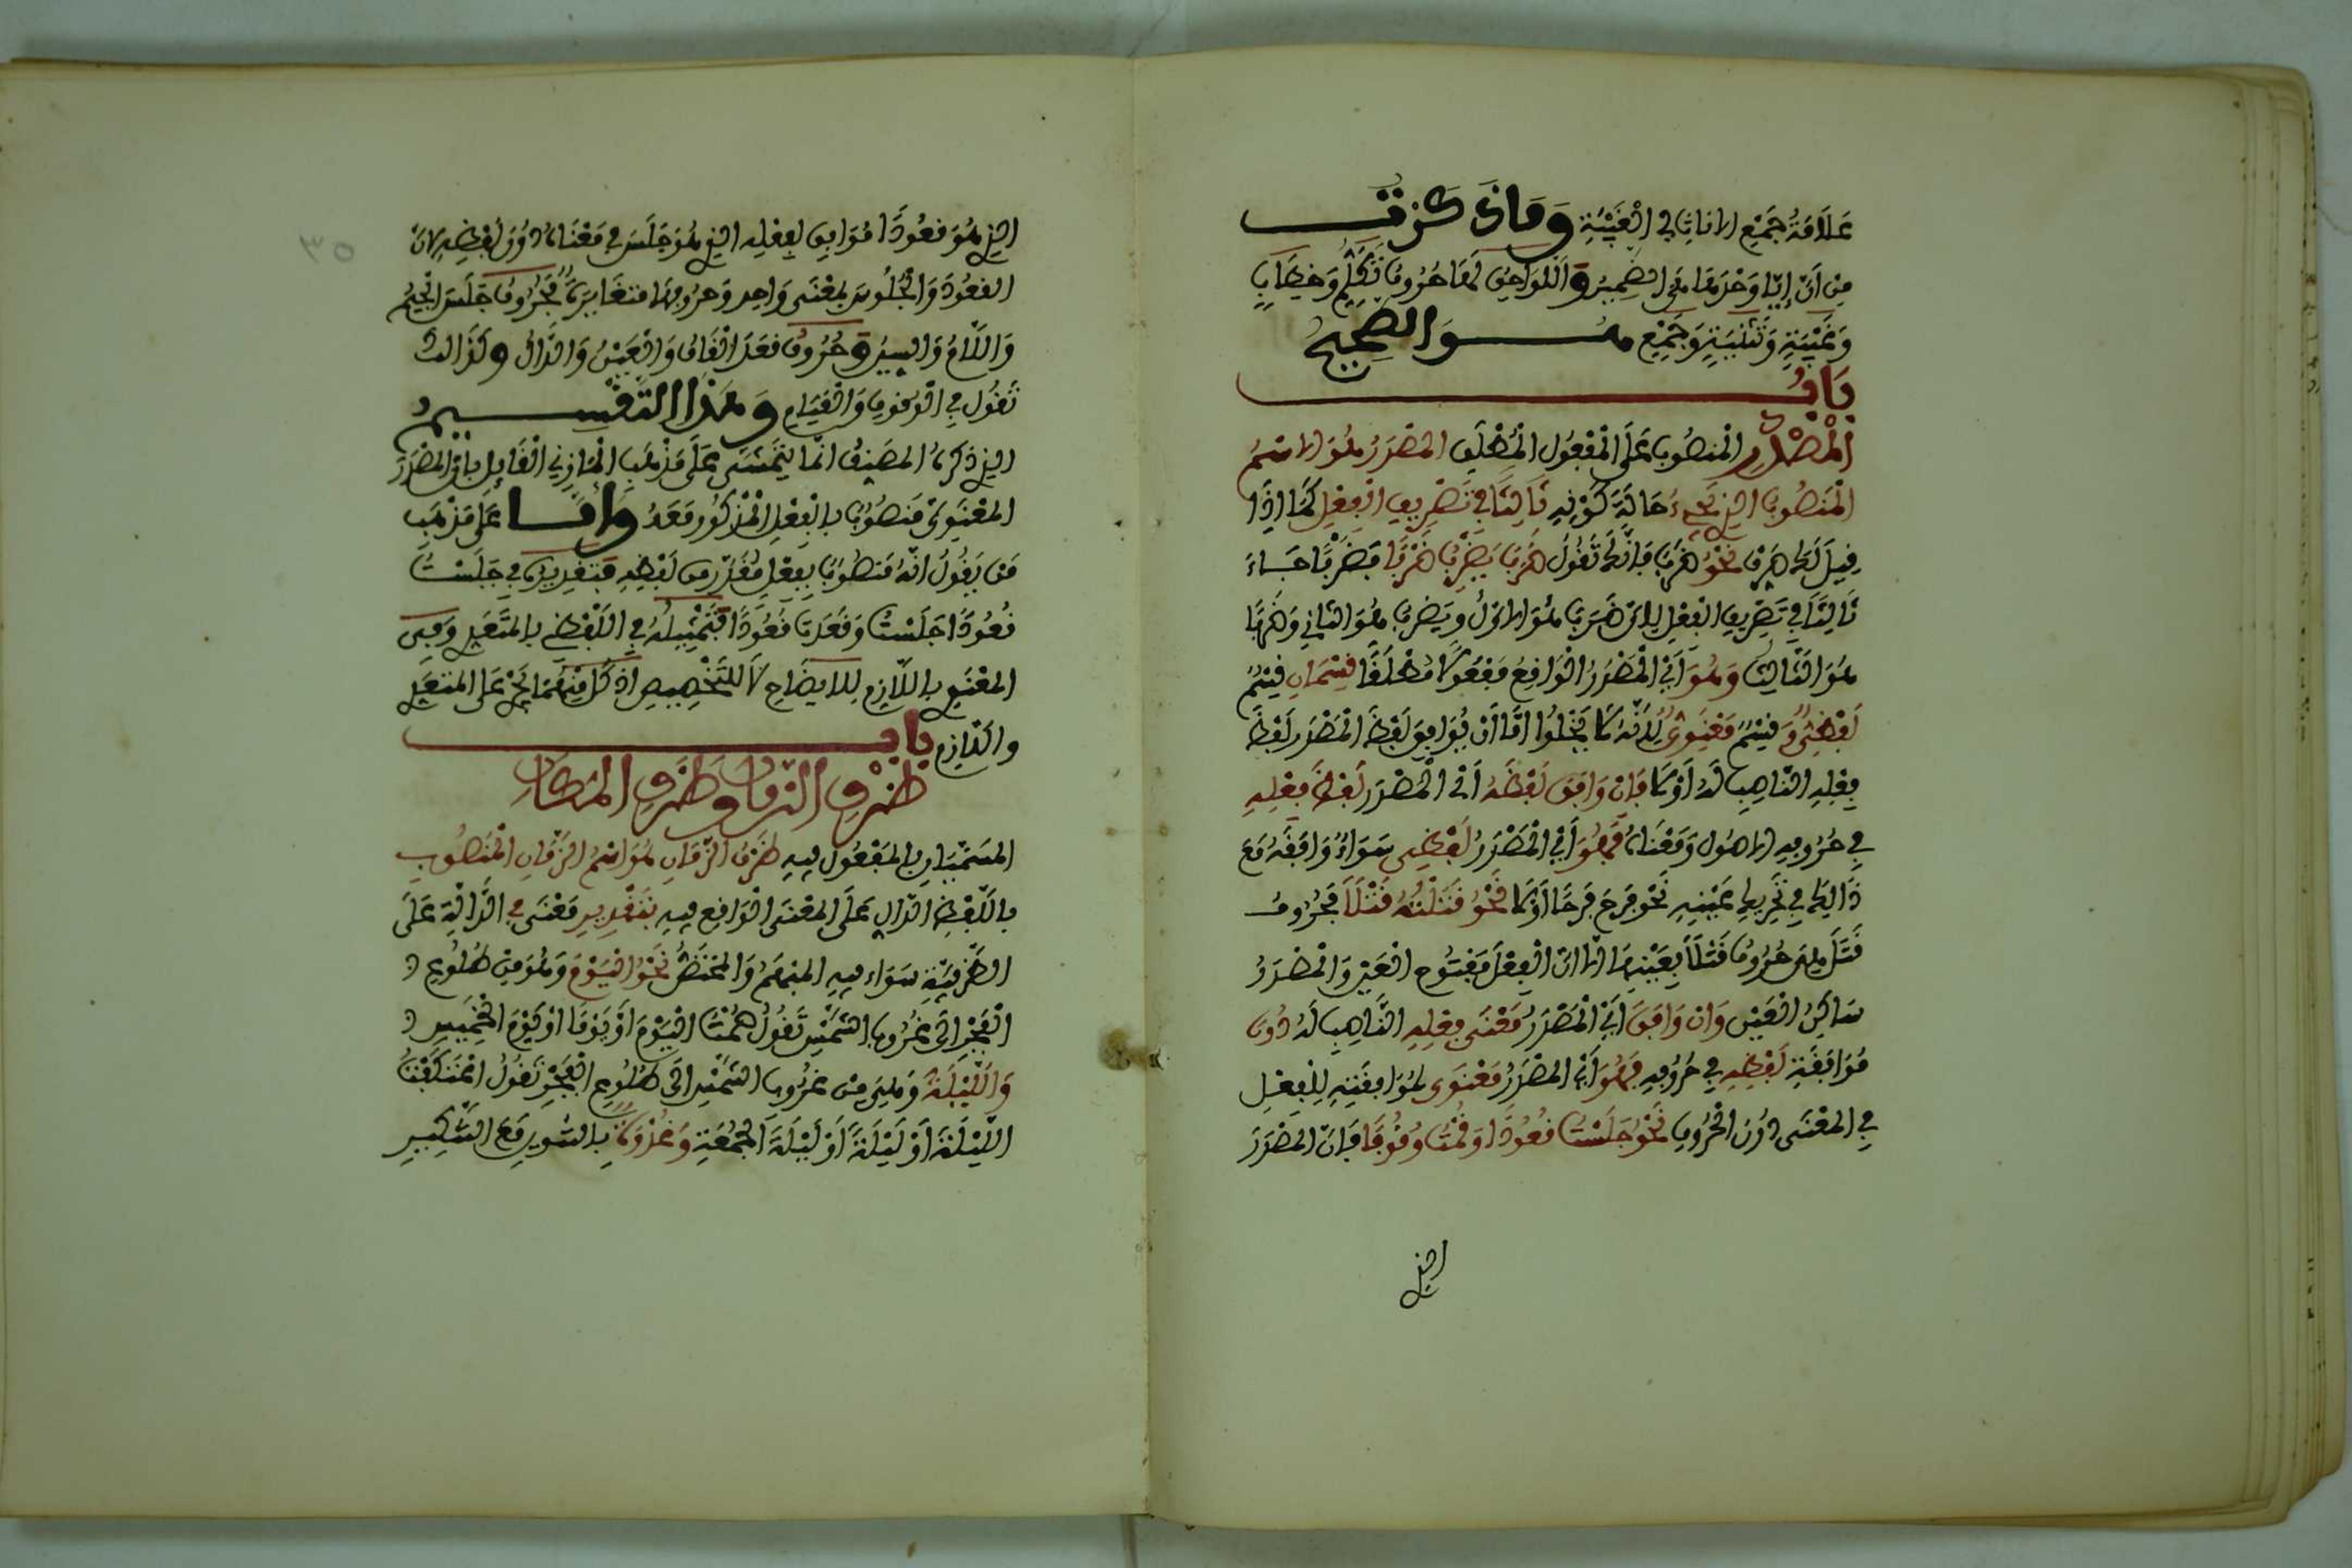 عَلَامَةُ جَمْعِ الانَاثِ فِي الْغَيْبَةِ وَمَا ذَكَرْتُ
مِنْ اَنَّ اِيَّا وَحْدَهَا هِيَ الضَّمِيرُ وَاللَّوَاحِقُ لَهَا حُرُوفُ تَكَلُّمٍ وَخِطَابٍ
وَغَيْبَةٍ وَتَثْنِيَةٍ وَجَمْعٍ هُوَ الصَّحِيحُ
بَابُ
الْمَصْدَرِ الْمَنصُوبِ عَلَى الْمَفْعُولِ الْمُطْلَقِ الْمَصْدَرُ هُوَ الاسْمُ
الْمَنصُوبُ الذِي يَجِيءُ حَالَةَ كَوْنِهِ ثَالِثًا فِي تَصْرِيفِ الْفِعْلِ كَمَا اِذَا
قِيلَ لَكَ صَرِّفْ نَحْوُ ضَرَبَ فَاِنَّكَ تَقُولُ ضَرَبَ يَضْرِبُ ضَرْبًا فَضَرْبًا جَاءَ
ثَالِثًا فِي تَصْرِيفِ الْفِعْلِ لِانَّ ضَرَبَ هُوَ الاوَّلُ وَيَضْرِبُ هُوَ الثَّانِي وَضَرْبًا
هُوَ الثَّالِثُ وَهُوَ اَيْ الْمَصْدَرُ الْوَاقِعُ مَفْعُولًا مُطْلَقًا قِسْمَانِ قِسْمٌ
لَفْظِيٌّ وَقِسْمٌ مَعْنَوِيٌّ لِاَنَّهُ لَا يَخْلُوا اِمَّا اَنْ يُوَافِقَ لَفْظُ الْمَصْدَرِ لَفْظَ
فِعْلِهِ النَّاصِبِ لَهُ اَوْ لَا فَاِنْ وَافَقَ لَفْظُهُ اَيْ الْمَصْدَرِ لَفْظَ فِعْلِهِ
فِي حُرُوفِهِ الاصُولِ وَمَعْنَاهُ فَهُوَ اَيْ الْمَصْدَرُ لَفْظِيٌّ سَوَاءٌ وَافَقَهُ مَعَ
ذَالِكَ فِي تَحْرِيكِ عَيْنِهِ نَحْوُ فَرِحَ فَرَحًا اَوْ لَا نَحْوُ قَتَلْتُهُ قَتْلًا فَحُرُوفُ
قَتَلَ هِيَ حُرُوفُ قَتْلًا بِعَيْنِهَا الا انَّ الْفِعْلَ مَفْتُوحُ الْعَيْنِ وَالْمَصْدَرُ
سَاكِنُ الْعَيْنِ وَانْ وَافَقَ اَيْ الْمَصْدَرُ مَعْنَى فِعْلِهِ النَّاصِبِ لَهُ دُونَ
مُوَافَقَةِ لَفْظِهِ فِي حُرُوفِهِ فَهُوَ اَيْ الْمَصْدَرُ مَعْنَوِي لِمُوَافَقَتِهِ لِلْفِعْلِ
فِي الْمَعْنَى دُونَ الْحُرُوفِ نَحْوُ جَلَسْتُ قُعُودًا وَقُمْتُ وُقُوفًا فَاِنَّ الْمَصْدَرَ
الذي
٣٥
الذِي هُوَ قُعُودًا مُوَافِق لِفِعْلِهِ الذِي هُوَ جَلَسَ فِي مَعْنَاهُ دُونَ لَفْظِهِ لِانَّ
القُعُودَ وَالْجُلُوسَ بِمَعْنَى وَاحِد وَحُرُوفهمَا مُتَغَايِرَةٌ فَحُرُوفُ جَلَسَ الْجِيمُ
وَاللَّامُ وَالسِينُ وَحُرُوفُ قَعَدَ الْقَافُ وَالْعَيْنُ وَالدَّالُ وَكَذَالِكَ
تَقُولُ فِي الْوُقُوفِ وَالْقِيَامِ وَهَذَا التَّقْسِيمُ
الذِي ذَكَرَهُ الْمُصَنِّفُ انَّمَا يَتَمَشَّى عَلَى مَذْهَبِ الْمَازِنِي الْقَائِلِ بِانَّ الْمَصْدَرَ
الْمَعْنَوِيَّ مَنصُوبٌ بِالْفِعْلِ الْمَذْكُورِ مَعَهُ وَامَّا عَلَى مَذْهَبِ
مَن يَقُولُ انَّهُ مَنصُوبٌ بِفِعْلٍ مُقَدَّرٍ مِن لَفْظِهِ فَتَقْدِيرُهُ فِي جَلَسْتُ
قُعُودًا جَلَسْتُ وَقَعَدتُ قُعُودًا فَتَمْثِيلُهُ فِي اللَّفْظِي بِالْمُتَعَدِّي وَفِي
الْمَعْنَوِي بِاللَّازِمِ لِلايضَاحِ لَا لِلتَّخْصِيصِ اذْ كُلٌّ مِنْهُمَا يَجْرِي عَلَى الْمُتَعَدِّي
وَاللَّازِمِ بَابُ
ظَرْفِ الزَّمَانِ وَظَرْفِ الْمَكَانِ
الْمُسَمَّيَانِ بِالْمَفْعُولِ فِيهِ ظَرْفُ الزَّمَانِ هُوَ اسْمُ الزَّمَانِ الْمَنصُوبِ
بِاللَّفْظِ الدَّالِّ عَلَى الْمَعْنَى الْوَاقِعِ فِيهِ بِتَقْدِيرِ مَعْنَى فِي الدَّالَّةِ عَلَى
الظَّرْفِيَّةِ سَوَاء فِيهِ الْمُبْهَمُ وَالْمُخْتَصُّ نَحْوُ الْيَوْمَ وَهُوَ مِنْ طُلُوعِ
الْفَجْرِ الَى غُرُوبِ الشَّمْسِ تَقُولُ صُمْتُ الْيَوْمَ اَوْ يَوْمًا اوْ يَوْمَ الْخَمِيسِ
وَاللَّيْلَةَ وَهِيَ مِنْ غُرُوبِ الشَّمْسِ الَى طُلُوعِ الْفَجْرِ تَقُولُ اعْتَكَفْتُ
اللَّيْلَةَ اَوْ لَيْلَةً اَوْ لَيْلَةَ الْجُمُعَةِ وَغُدْوَةً بِالتَّنْوِينِ مَعَ التَّنْكِيرِ